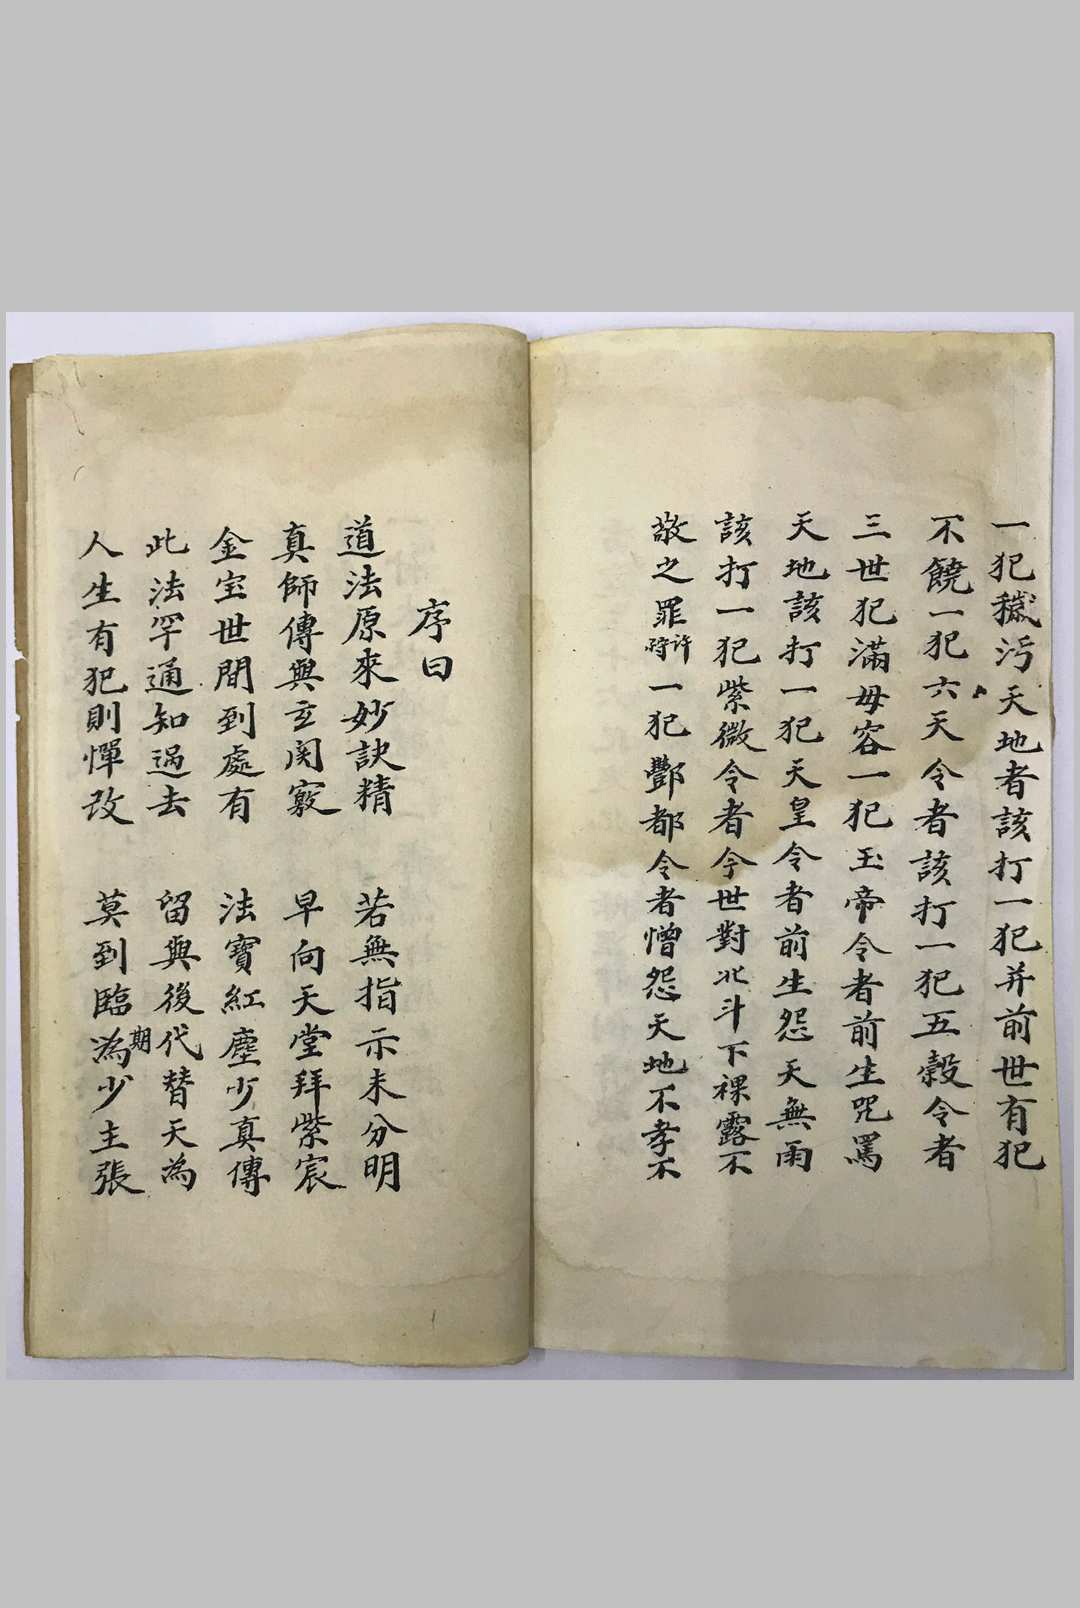 一犯穢污天地者該打一犯并前世有犯
不饒一犯六天令者該打一犯五榖令者
三世犯滿毋容一犯玉帝令者前生咒罵
天地該打一犯天皇令者前生怨天無雨
該打一犯紫微令者今世對北斗下裸露不
敬之罪許一犯酆都令者憎怨天地不孝不
序曰
道法原來妙訣精 若無指示未分明
真師傳與玄関竅 早向天堂拜紫宸
金宝世間到處有 法寶紅塵少真傳
此法罕通知過去 留與後代替天為
人生有犯則憚改 莫到臨期為少主張